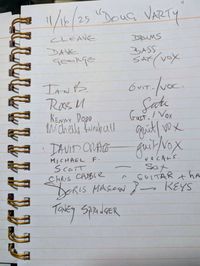 11/16/25 "DOUG VARTY"
CLEAVE DRUMS
DAVE BASS
GEORGE SAX/VOX
IAN B GUIT./VOC.
ROSS M
KENNY DODD GUIT./VOX
Michelle guit/VOX
DAVID CRAIG guit/VOX
MICHAEL F. VOCALS
SCOTT SAX
CHRIS GUITAR +
DORIS MASON KEYS
TONEY